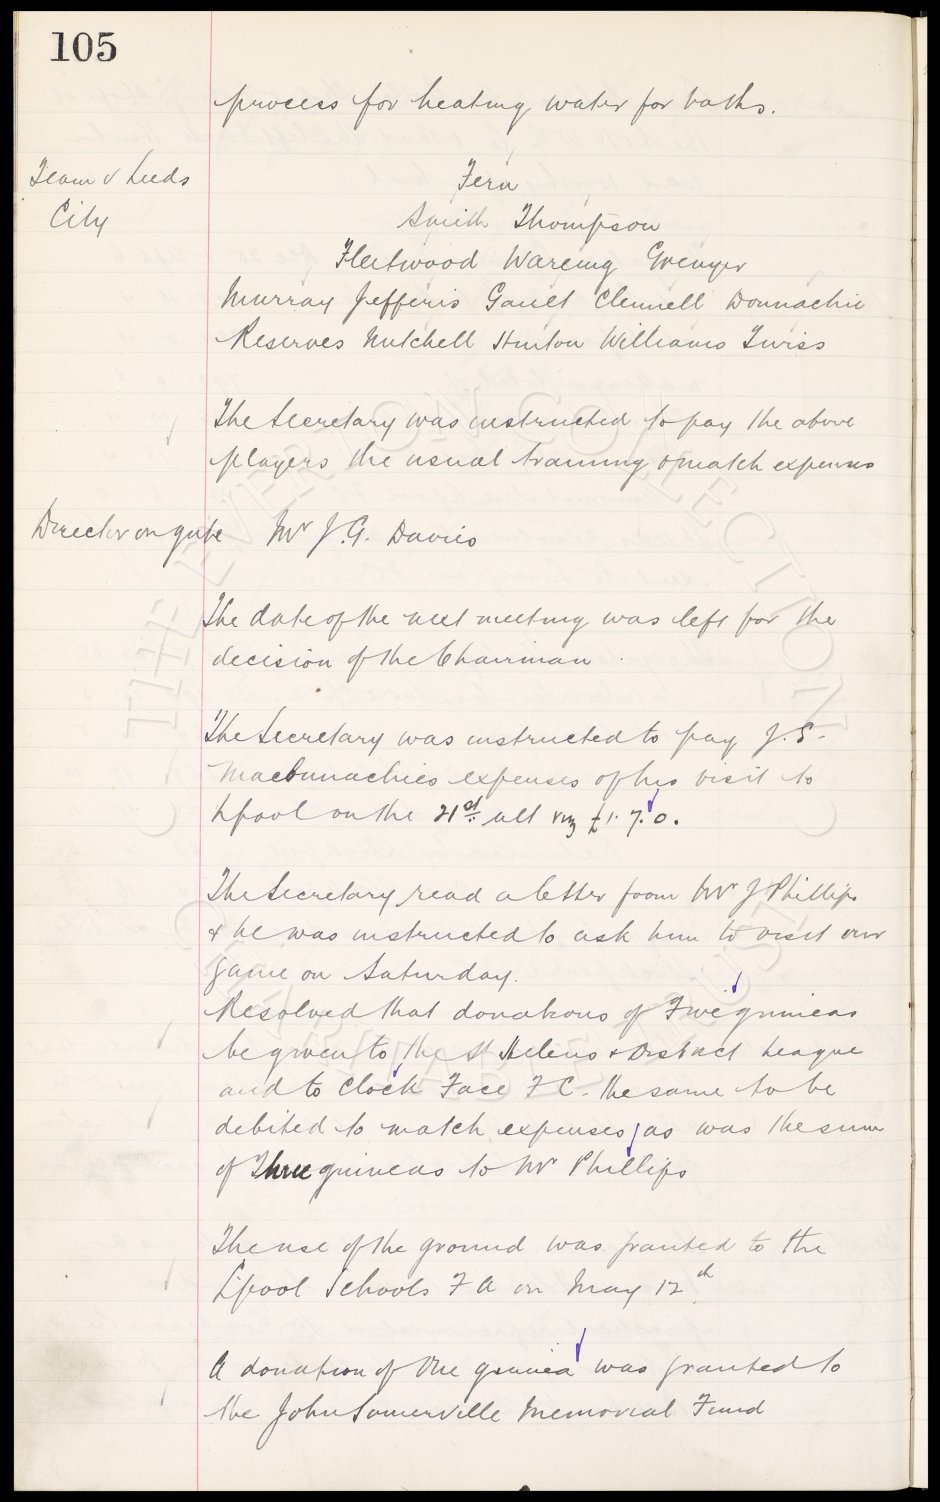 105
process for heating water for baths.
Team v Leeds
City
Fern
Smith Thompson
Fleetwood Wareing Grenyer
Murray Jefferis Gault Clennell Donnachie
Reserves Mitchell Hinton Williams Twiss
The Secretary was instructed to pay the above
players the usual training & match expenses
Director on gate Mr J.G. Davies
The date of the next meeting was left for the
decision of the Chairman.
The Secretary was instructed to pay J.S.
Macconnachies expenses of his visit to
Lpool on the 21st ult viz £1.7.0.
The Secretary read a letter from Mr J Phillips
& he was instructed to ask him to visit our
game on Saturday.
Resolved that donations of Five guineas
be given to the St Helens & District League
and to Clock Face F C. the same to be
debited to match expenses, as was the sum
of Three guineas to Mr Phillips
The use of the ground was granted to the
Lpool Schools F A on May 12th
A donation of One guinea was granted to
the John Somerville Memorial Fund
THE EVERTON COLLECTION
CHARITABLE TRUST